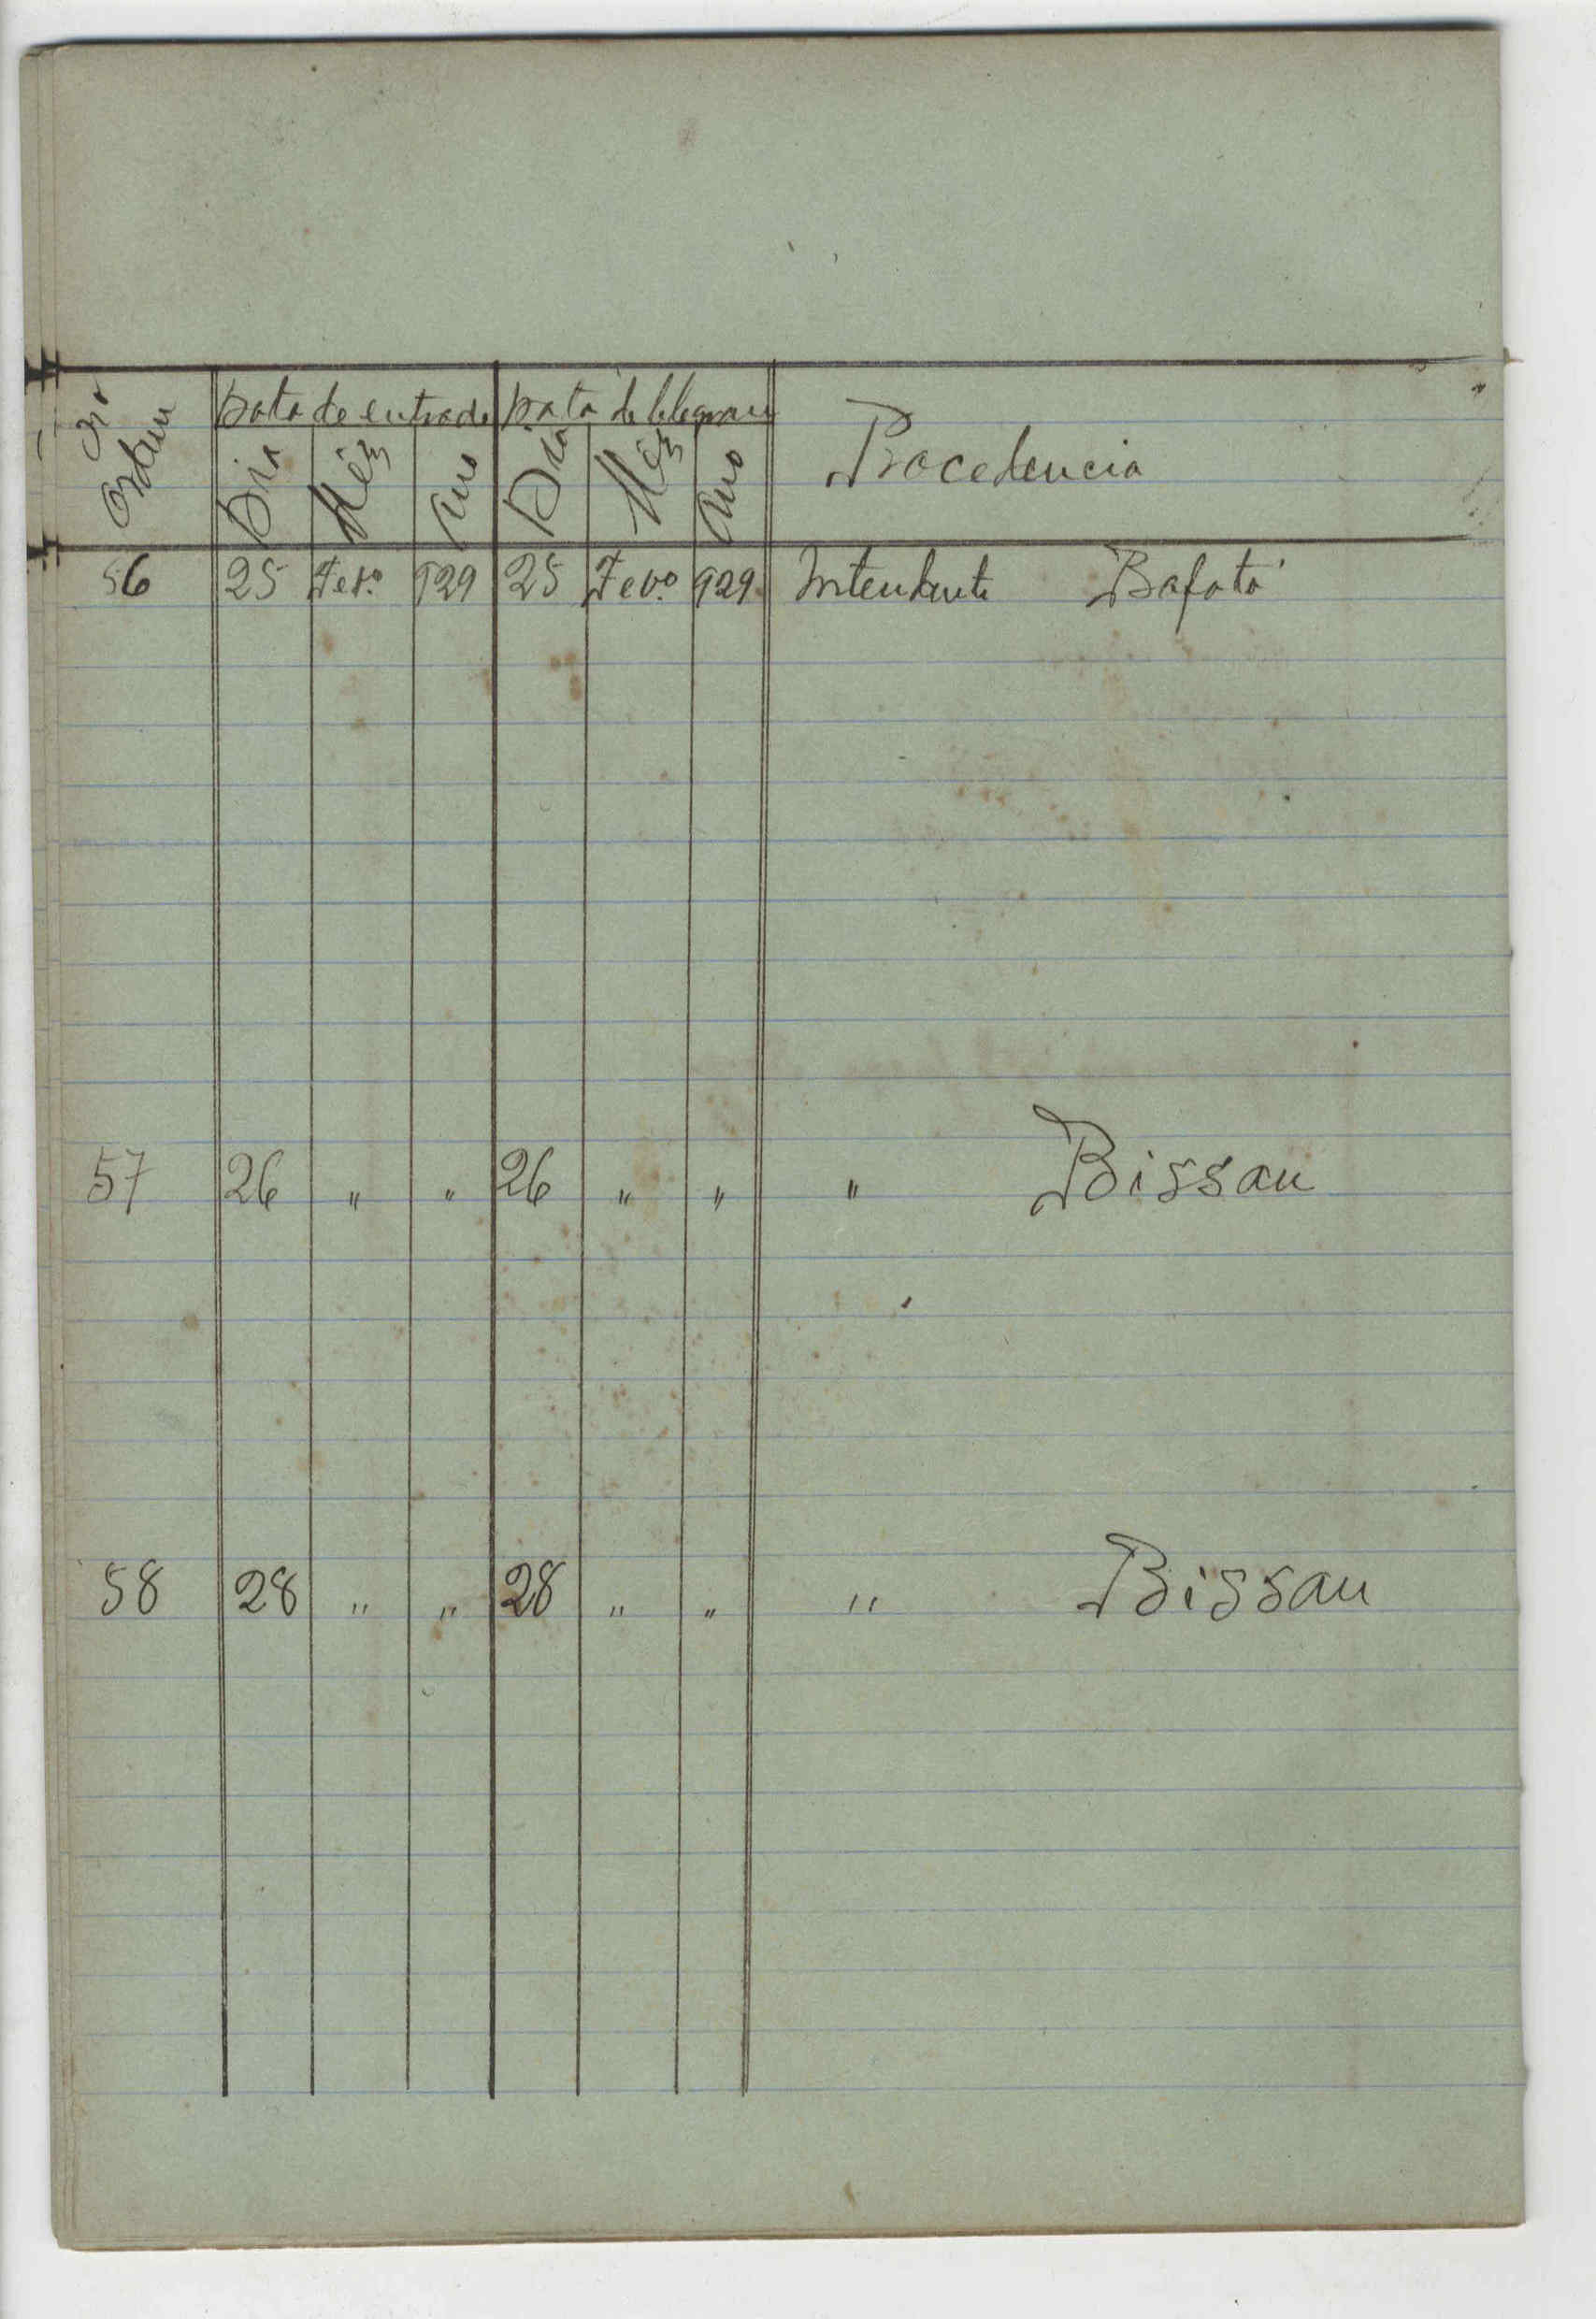 Nº Ordem
Data de entrada Data de telegram
Dia Mês Ano Dia Mês Ano Procedencia
56 25 Fevº 929 25 Fevº 929 Intendente Bafatá
57 26 " " 26 " " " Bissau
58 28 " " 28 " " " Bissau